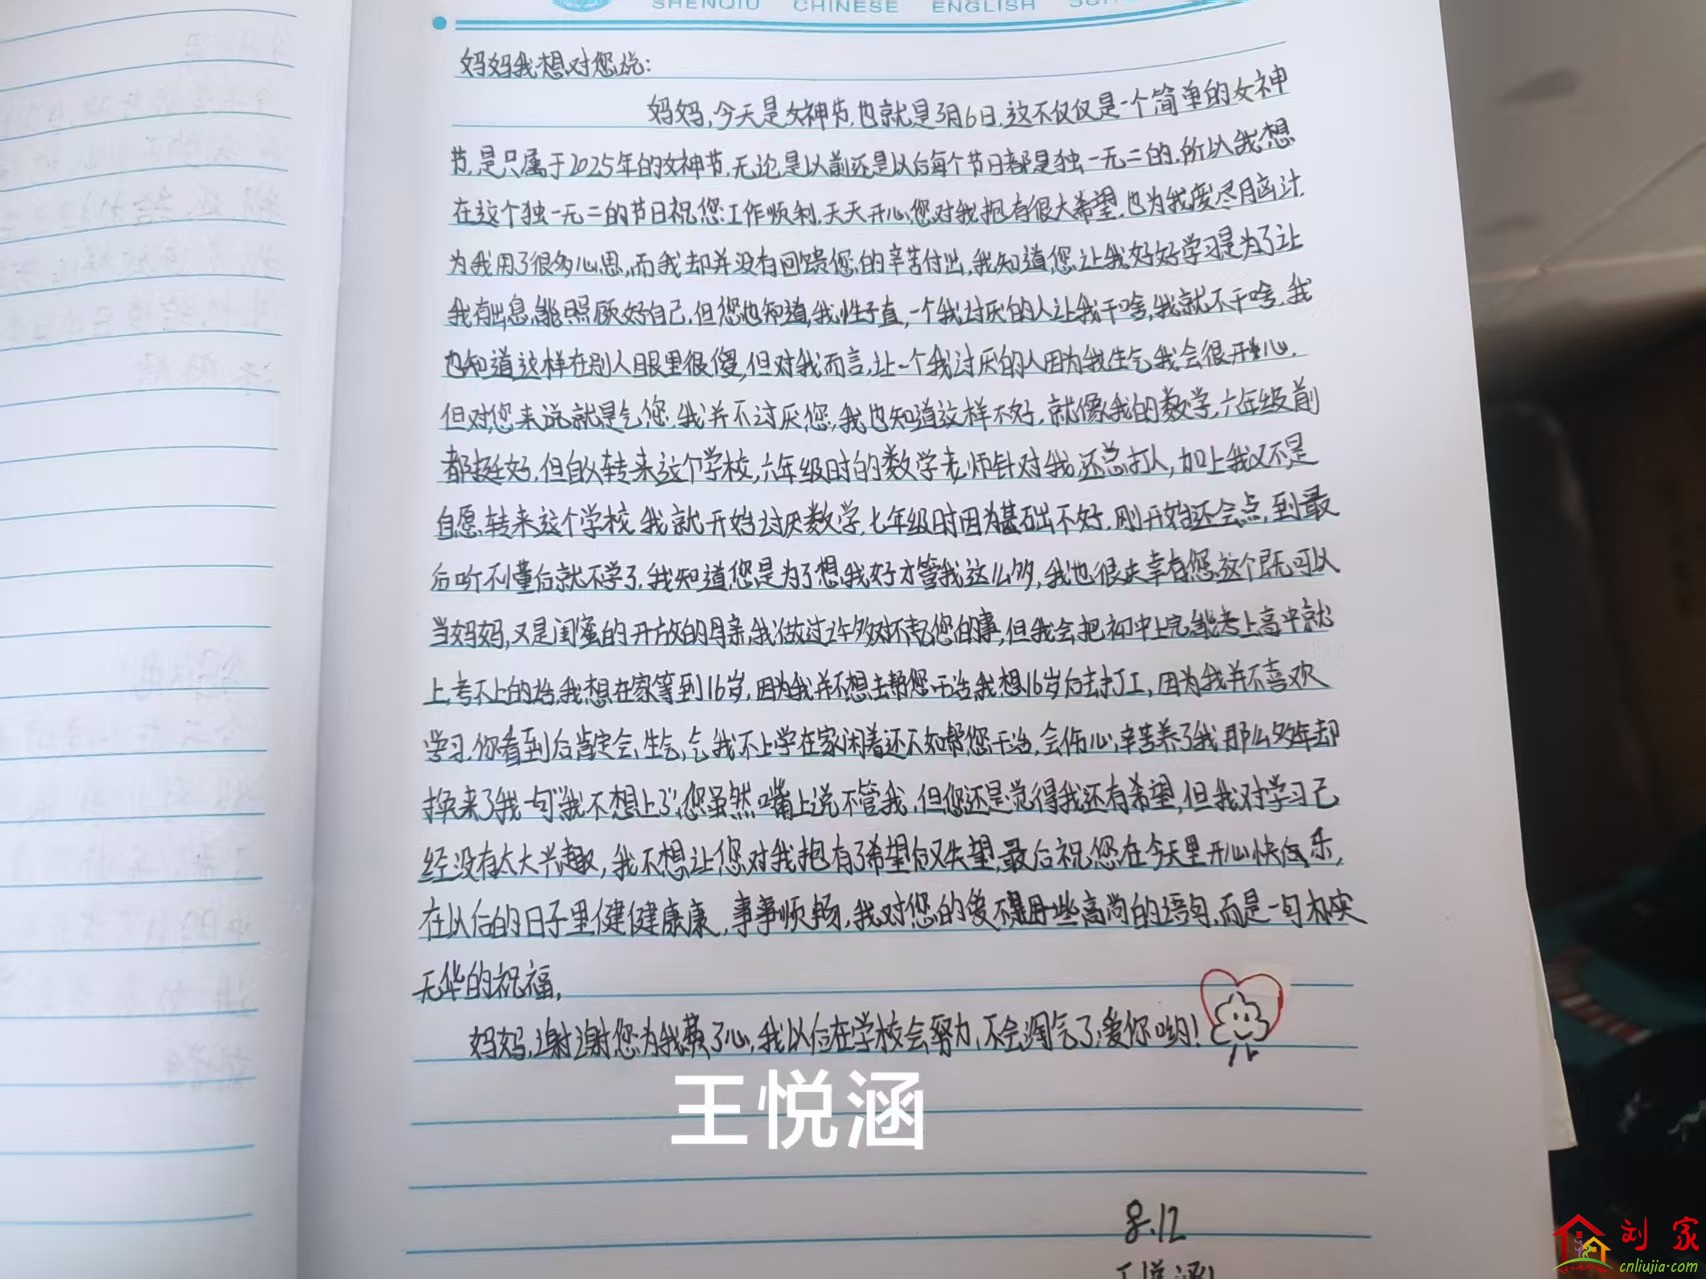 SHENQIU CHINESE ENGLISH
妈妈我想对您说:
妈妈,今天是女神节,也就是3月6日,这不仅仅是一个简单的女神
节,是只属于2025年的女神节,无论是以前还是以后每个节日都是独一无二的,所以我想
在这个独一无二的节日祝您工作顺利,天天开心,您对我抱有很大希望,也为我废尽脑汁
为我用了很多心思,而我却并没有回馈您的辛苦付出,我知道您让我好好学习是为了让
我有出息,能照顾好自己,但您也知道,我性子直,一个我讨厌的人让我干啥,我就不干啥,我
也知道这样在别人眼里很傻,但对我而言,让一个我讨厌的人因为我生气,我会很开心.
但对您来说就是气您,我并不讨厌您,我也知道这样不好,就像我的数学,六年级前
都挺好,但自从转来这个学校,六年级时的数学老师针对我,还总打人,加上我又不是
自愿转来这个学校,我就开始讨厌数学,七年级时因为基础不好,刚开始还会点,到最
后听不懂后就不学了,我知道您是为了想我好才管我这么多,我也很庆幸有您这个既可以
当妈妈,又是闺蜜的开放的母亲,我做过许多对不起您的事,但我会把初中上完,能考上高中就
上,考不上的话,我想在家等到16岁,因为我并不想去帮您干活,我想16岁后去打工,因为我并不喜欢
学习,你看到后肯定会生气,气我不上学在家闲着还不知帮您干活,会伤心,辛苦养了我那么多年却
换来了我一句"我不想上了",您虽然嘴上说不管我,但您还是觉得我还有希望,但我对学习已
经没有太大兴趣,我不想让您对我抱有了希望后又失望,最后祝您在今天里开心快乐,
在以后的日子里健健康康,事事顺畅,我对您的爱不是用些高尚的语句,而是一句朴实
无华的祝福,
妈妈,谢谢您为我费了心,我以后在学校会努力,不会淘气了,爱你哟!
王悦涵
8.12
王悦涵
刘家
cnliujia.com